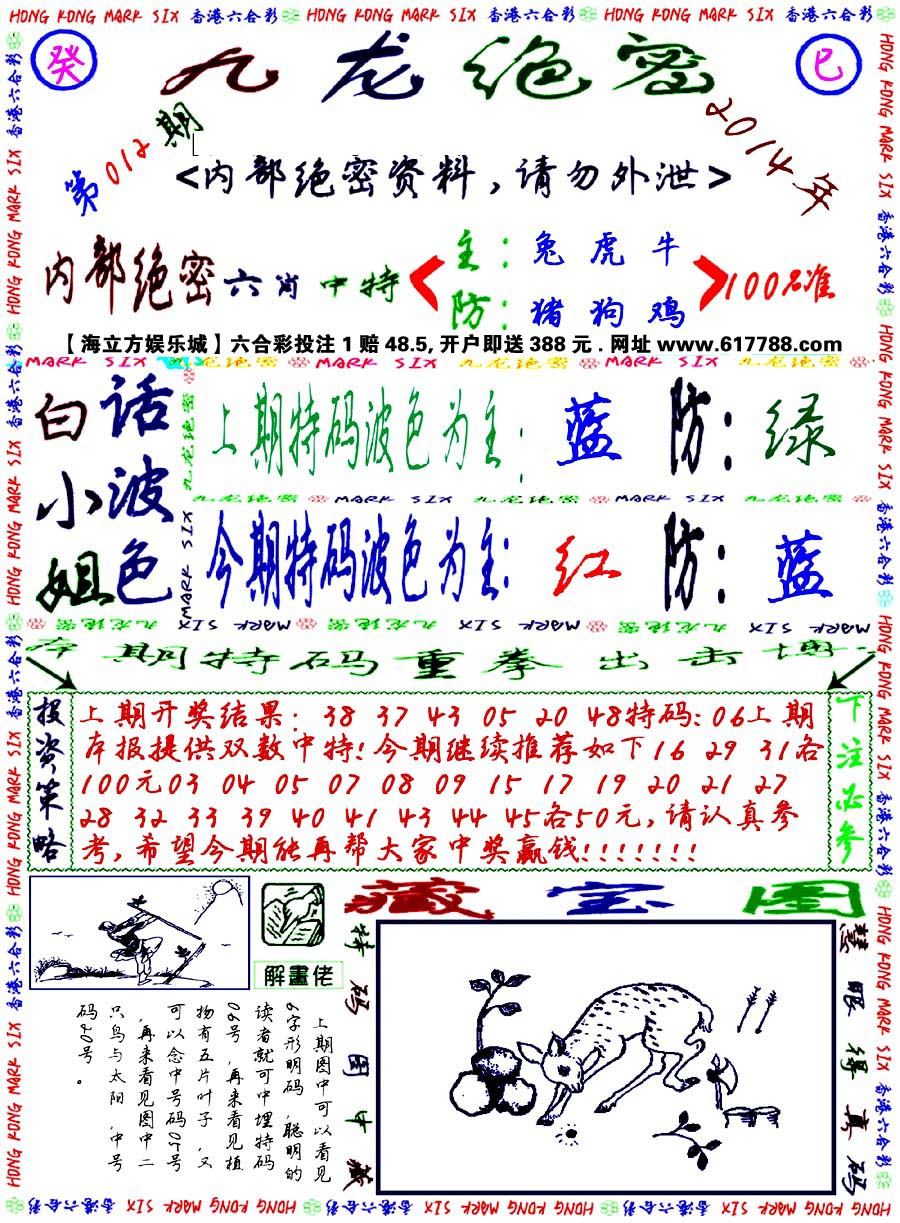 香港六合彩 HONG KONG MARK SIX 香港六合彩 HONG KONG MARK SIX 香港六合彩 HONG KONG MARK SIX 香港六合彩
癸
九龙绝密
巳
第012期
2014年
<内部绝密资料,请勿外泄>
内部绝密六肖中特
主：兔虎牛
防：猪狗鸡
100%准
【海立方娱乐城】六合彩投注1赔48.5,开户即送388元.网址www.617788.com
MARK SIX 九龙绝密 MARK SIX 九龙绝密 MARK SIX 九龙绝密
白话小波姐色
上期特码波色为主：蓝 防：绿
九龙绝密 MARK SIX 九龙绝密 MARK SIX 九龙绝密
今期特码波色为主：红 防：蓝
九龙绝密 MARK SIX 九龙绝密 MARK SIX 九龙绝密 MARK SIX
本期特码重拳出击博
投资策略
上期开奖结果：38 37 43 05 20 48特码:06上期
本报提供双数中特!今期继续推荐如下16 29 31各
100元03 04 05 07 08 09 15 17 19 20 21 27
28 32 33 39 40 41 43 44 45各50元,请认真参
考,希望今期能再帮大家中奖赢钱!!!!!!!
下注必参
解畫佬
藏宝图
特码图中藏
慧眼得真码
上期图中可以看见
6字形明码，聪明的
读者就可中埋特码
06号，再来看见植
物有五片叶子，又
可以念中号码05号
，再来看见图中二
只鸟与太阳，中号
码20号。
HONG KONG MARK SIX 香港六合彩 HONG KONG MARK SIX 香港六合彩 HONG KONG MARK SIX 香港六合彩